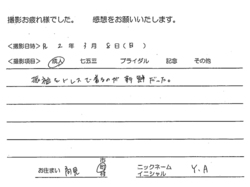 撮影お疲れ様でした。　感想をお願いいたします。
＜撮影日時＞ R 2 年 3 月 8 日（日）
＜撮影項目＞ 成人　七五三　ブライダル　記念　その他
振袖をドレスで着るのが新鮮だった。
お住まい　市　町　村　ニックネーム　イニシャル　Y.A